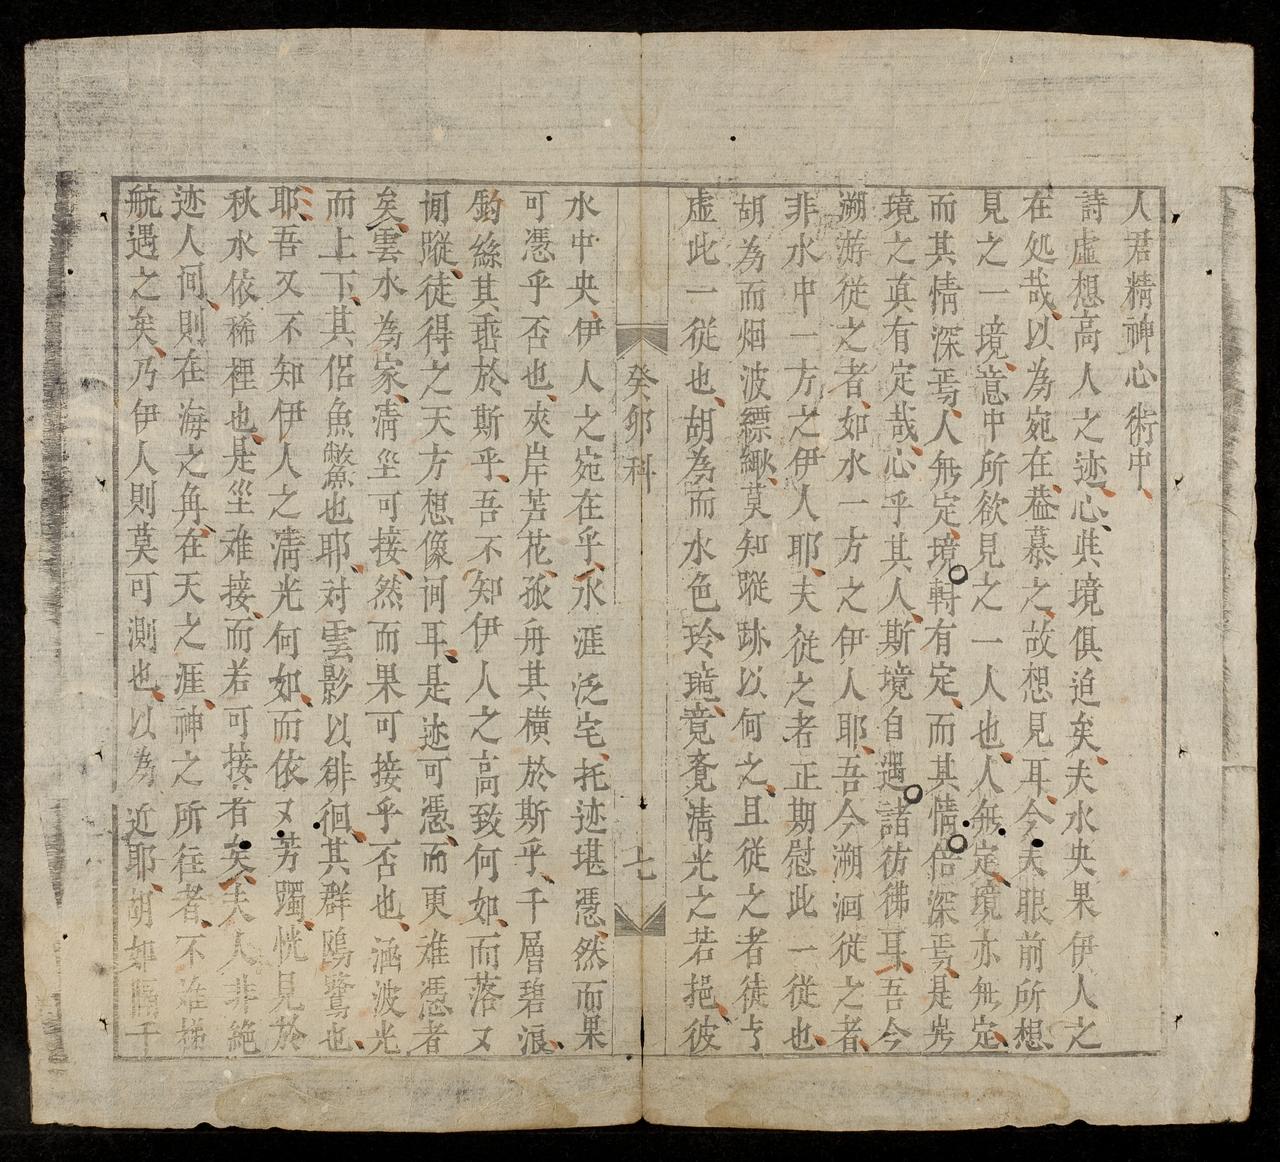 人君精神心術中
詩虛想高人之迹心与境俱迫矣夫水央果伊人之
在処哉以為宛在葢慕之故想見耳今夫眼前所想
見之一境意中所欲見之一人也人無定境亦無定
而其情深焉人無定境軒有定而其情倍深焉是岂
境之真有定哉心乎其人斯境自遇諸彷彿耳吾今
溯游從之者如水一方之伊人耶吾今溯洄從之者
非水中一方之伊人耶夫從之者正期慰此一從也
胡為而烟波縹緲莫知蹤跡以何之且從之者徒
虛此一從也胡為而水色玲瓏竟竟清光之若挹彼
癸卯科
七
水中央伊人之宛在乎水涯泛宅托迹堪憑然而果
可憑乎否也夾岸芦花孤舟其橫於斯乎千層碧浪
釣絲其垂於斯乎吾不知伊人之高致何如而落又
闻蹤徒得之天方想像间耳是迹可憑而更难憑者
矣雲水為家清坐可接然而果可接乎否也涵波光
而上下其侣魚鱉也耶对雲影以徘徊其群鷗鷺也
耶吾又不知伊人之清光何如而依又芳躅恍見於
秋水依稀裡也是坐难接而若可接者矣夫人非絶
迹人间則在海之角在天之涯神之所往者不难梯
航遇之矣乃伊人則莫可測也以為近耶胡如隔千